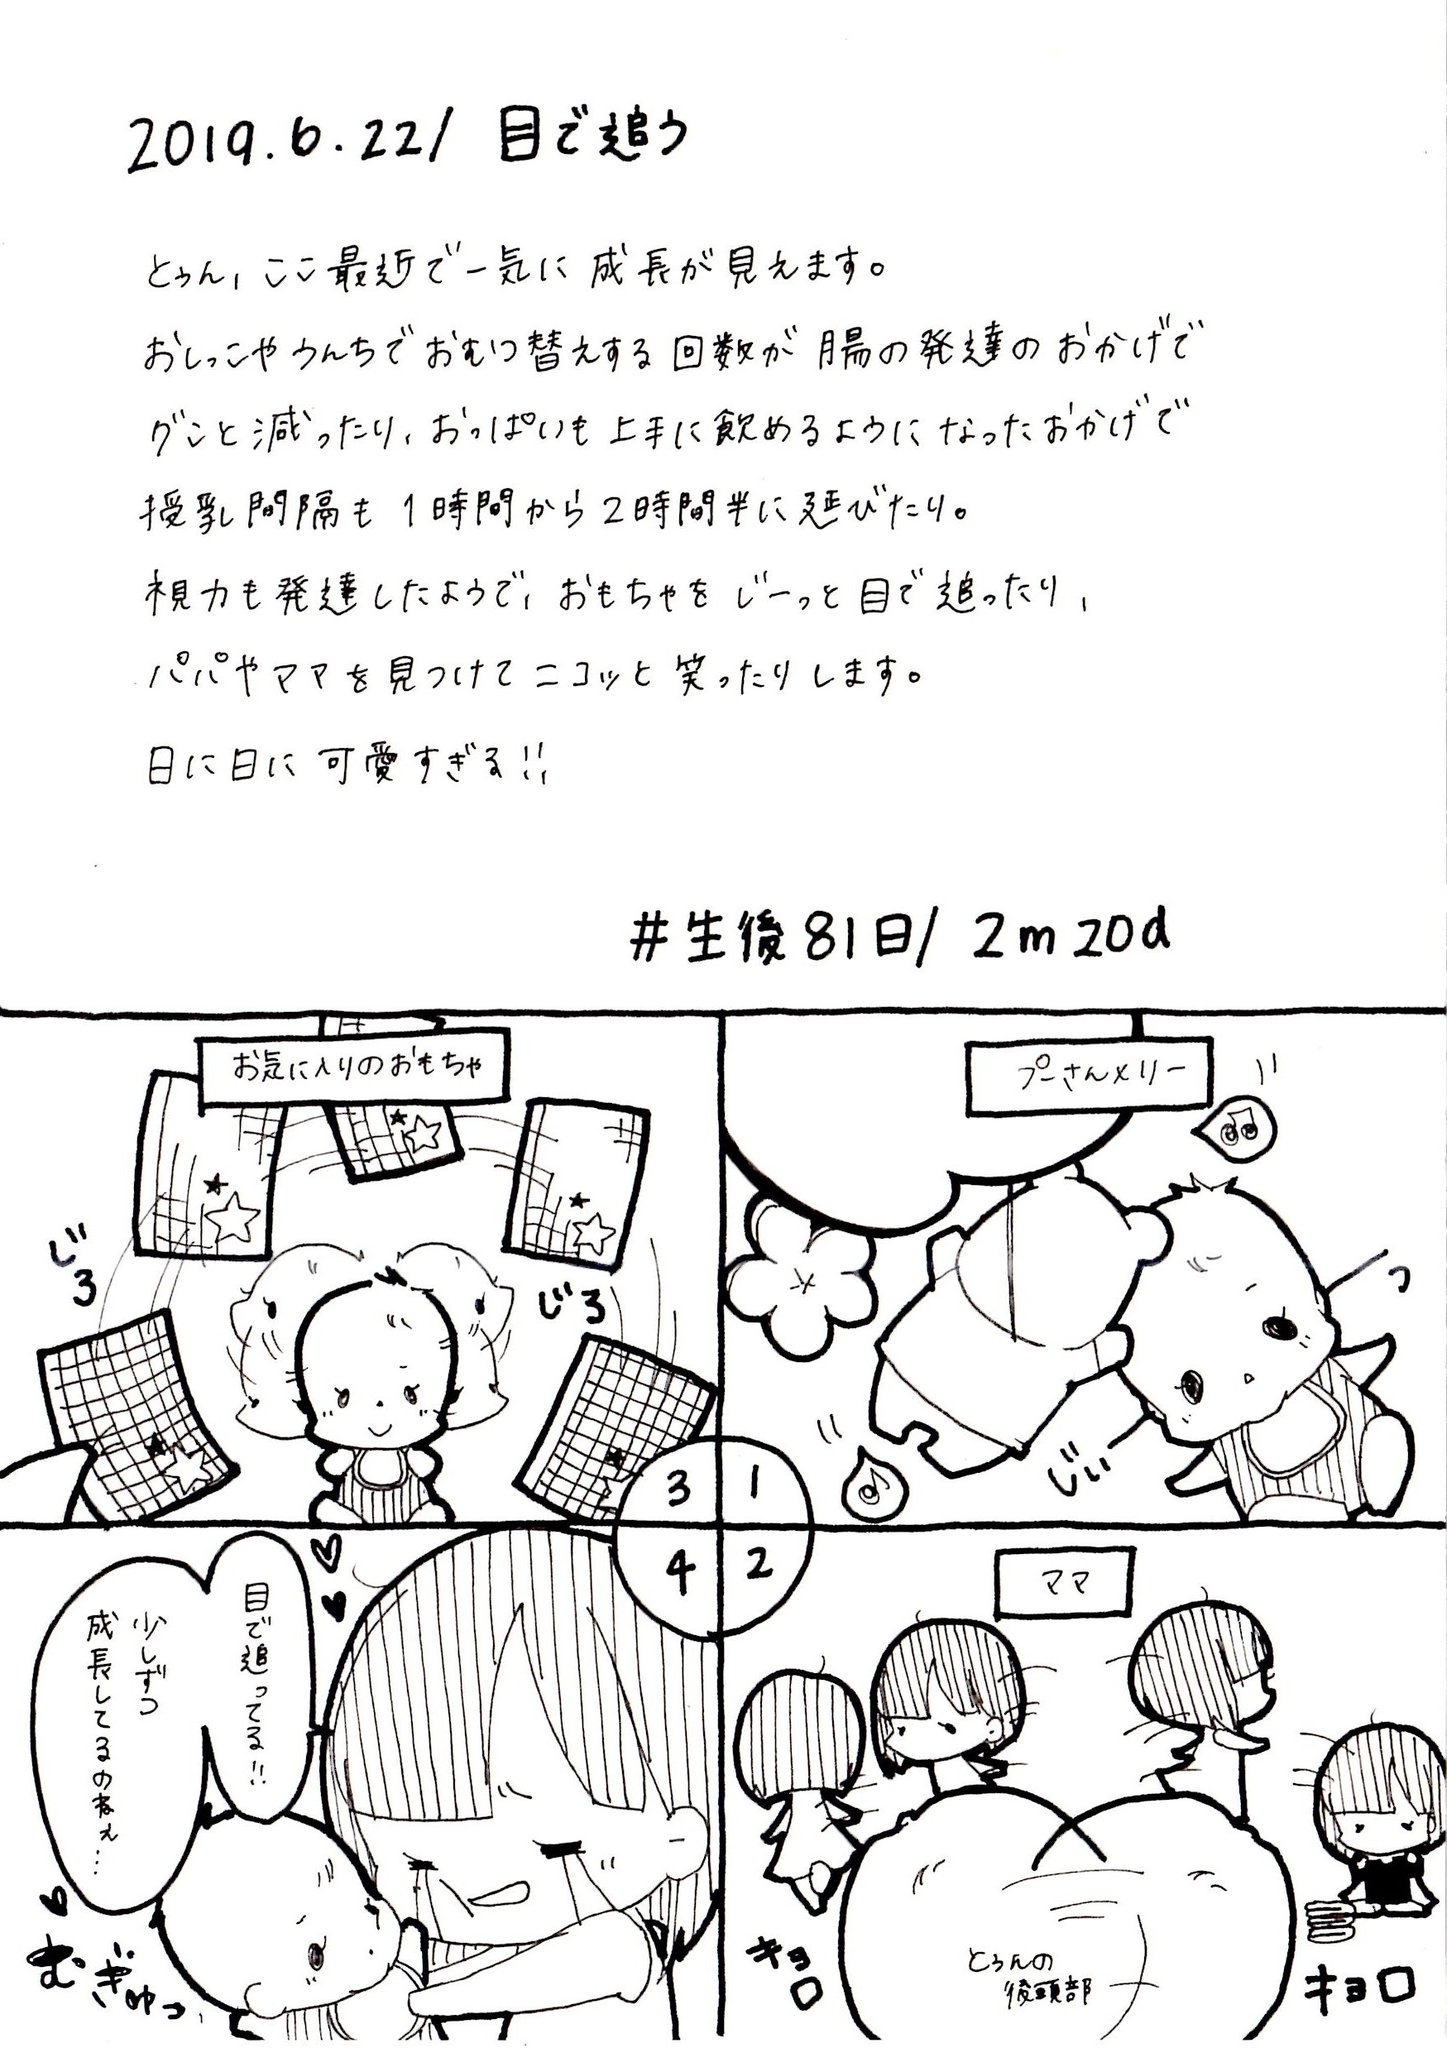 2019.6.22/ 目で追う
とぅん、ここ最近で一気に成長が見えます。
おしっこやうんちでおむつ替えする回数が腸の発達のおかげで
グンと減ったり、おっぱいも上手に飲めるようになったおかげで
授乳間隔も1時間から2時間半に延びたり。
視力も発達したようで、おもちゃをじーっと目で追ったり、
パパやママを見つけてニコッと笑ったりします。
日に日に可愛すぎる!!
#生後81日/ 2m20d
プーさんメリー
じぃ
っ
1
ママ
キョロ
キョロ
とぅんの
後頭部
2
お気に入りのおもちゃ
じろ
じろ
3
目で追ってる!!
少しずつ
成長してるのねぇ…
むぎゅっ
4